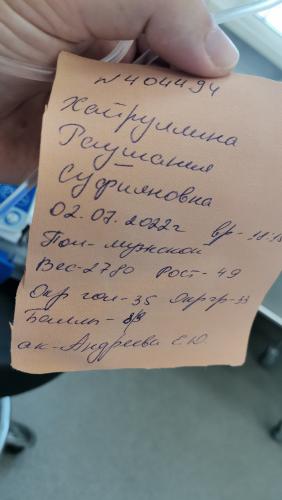 N 404494
Хайруллина
Раушания
Суфияновна
02.07.2022г вр-
Пол- мужской
Вес-2780 Рост-49
Окр гол-35 Окр гр-33
Баллы- 8/9
ак-Андреева Е.Ю.